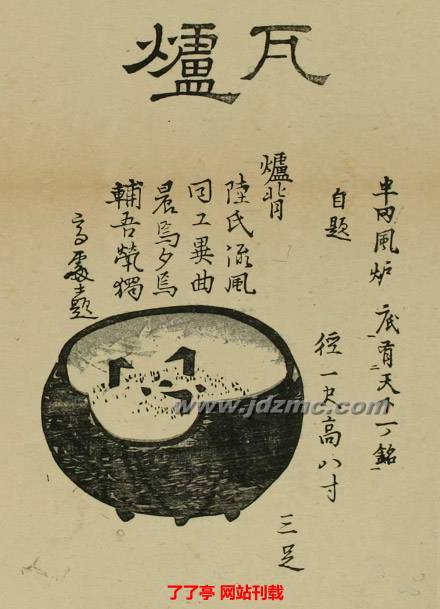 瓦爐
風炉 底有天下一ノ銘
徑一尺高八寸
三足
自題
爐背
陸氏流風
同工異曲
晨焉夕焉
輔吾煢獨
題
www.jdzmc.com
了了亭 网站刊载